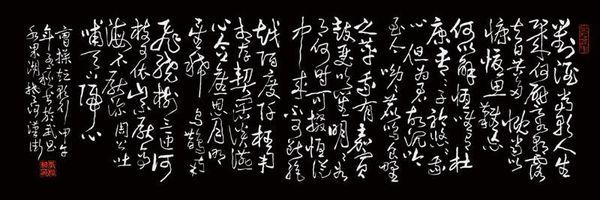 對酒當歌人生
幾何譬如朝露
去日苦多慨當以
慷憂思難忘
何以解憂唯有杜
康青青子衿悠悠我
心但為君故沉吟
至今呦呦鹿鳴食野
之苹我有嘉賓
鼓瑟吹笙明明如月
何時可掇憂從
中來不可斷絕
越陌度阡枉用
相存契闊談讌
心念舊恩月明
星稀烏鵲南
飛繞樹三匝何
枝可依山不厭高
海不厭深周公吐
哺天下歸心
曹操短歌行甲午
年於武昌
水果湖